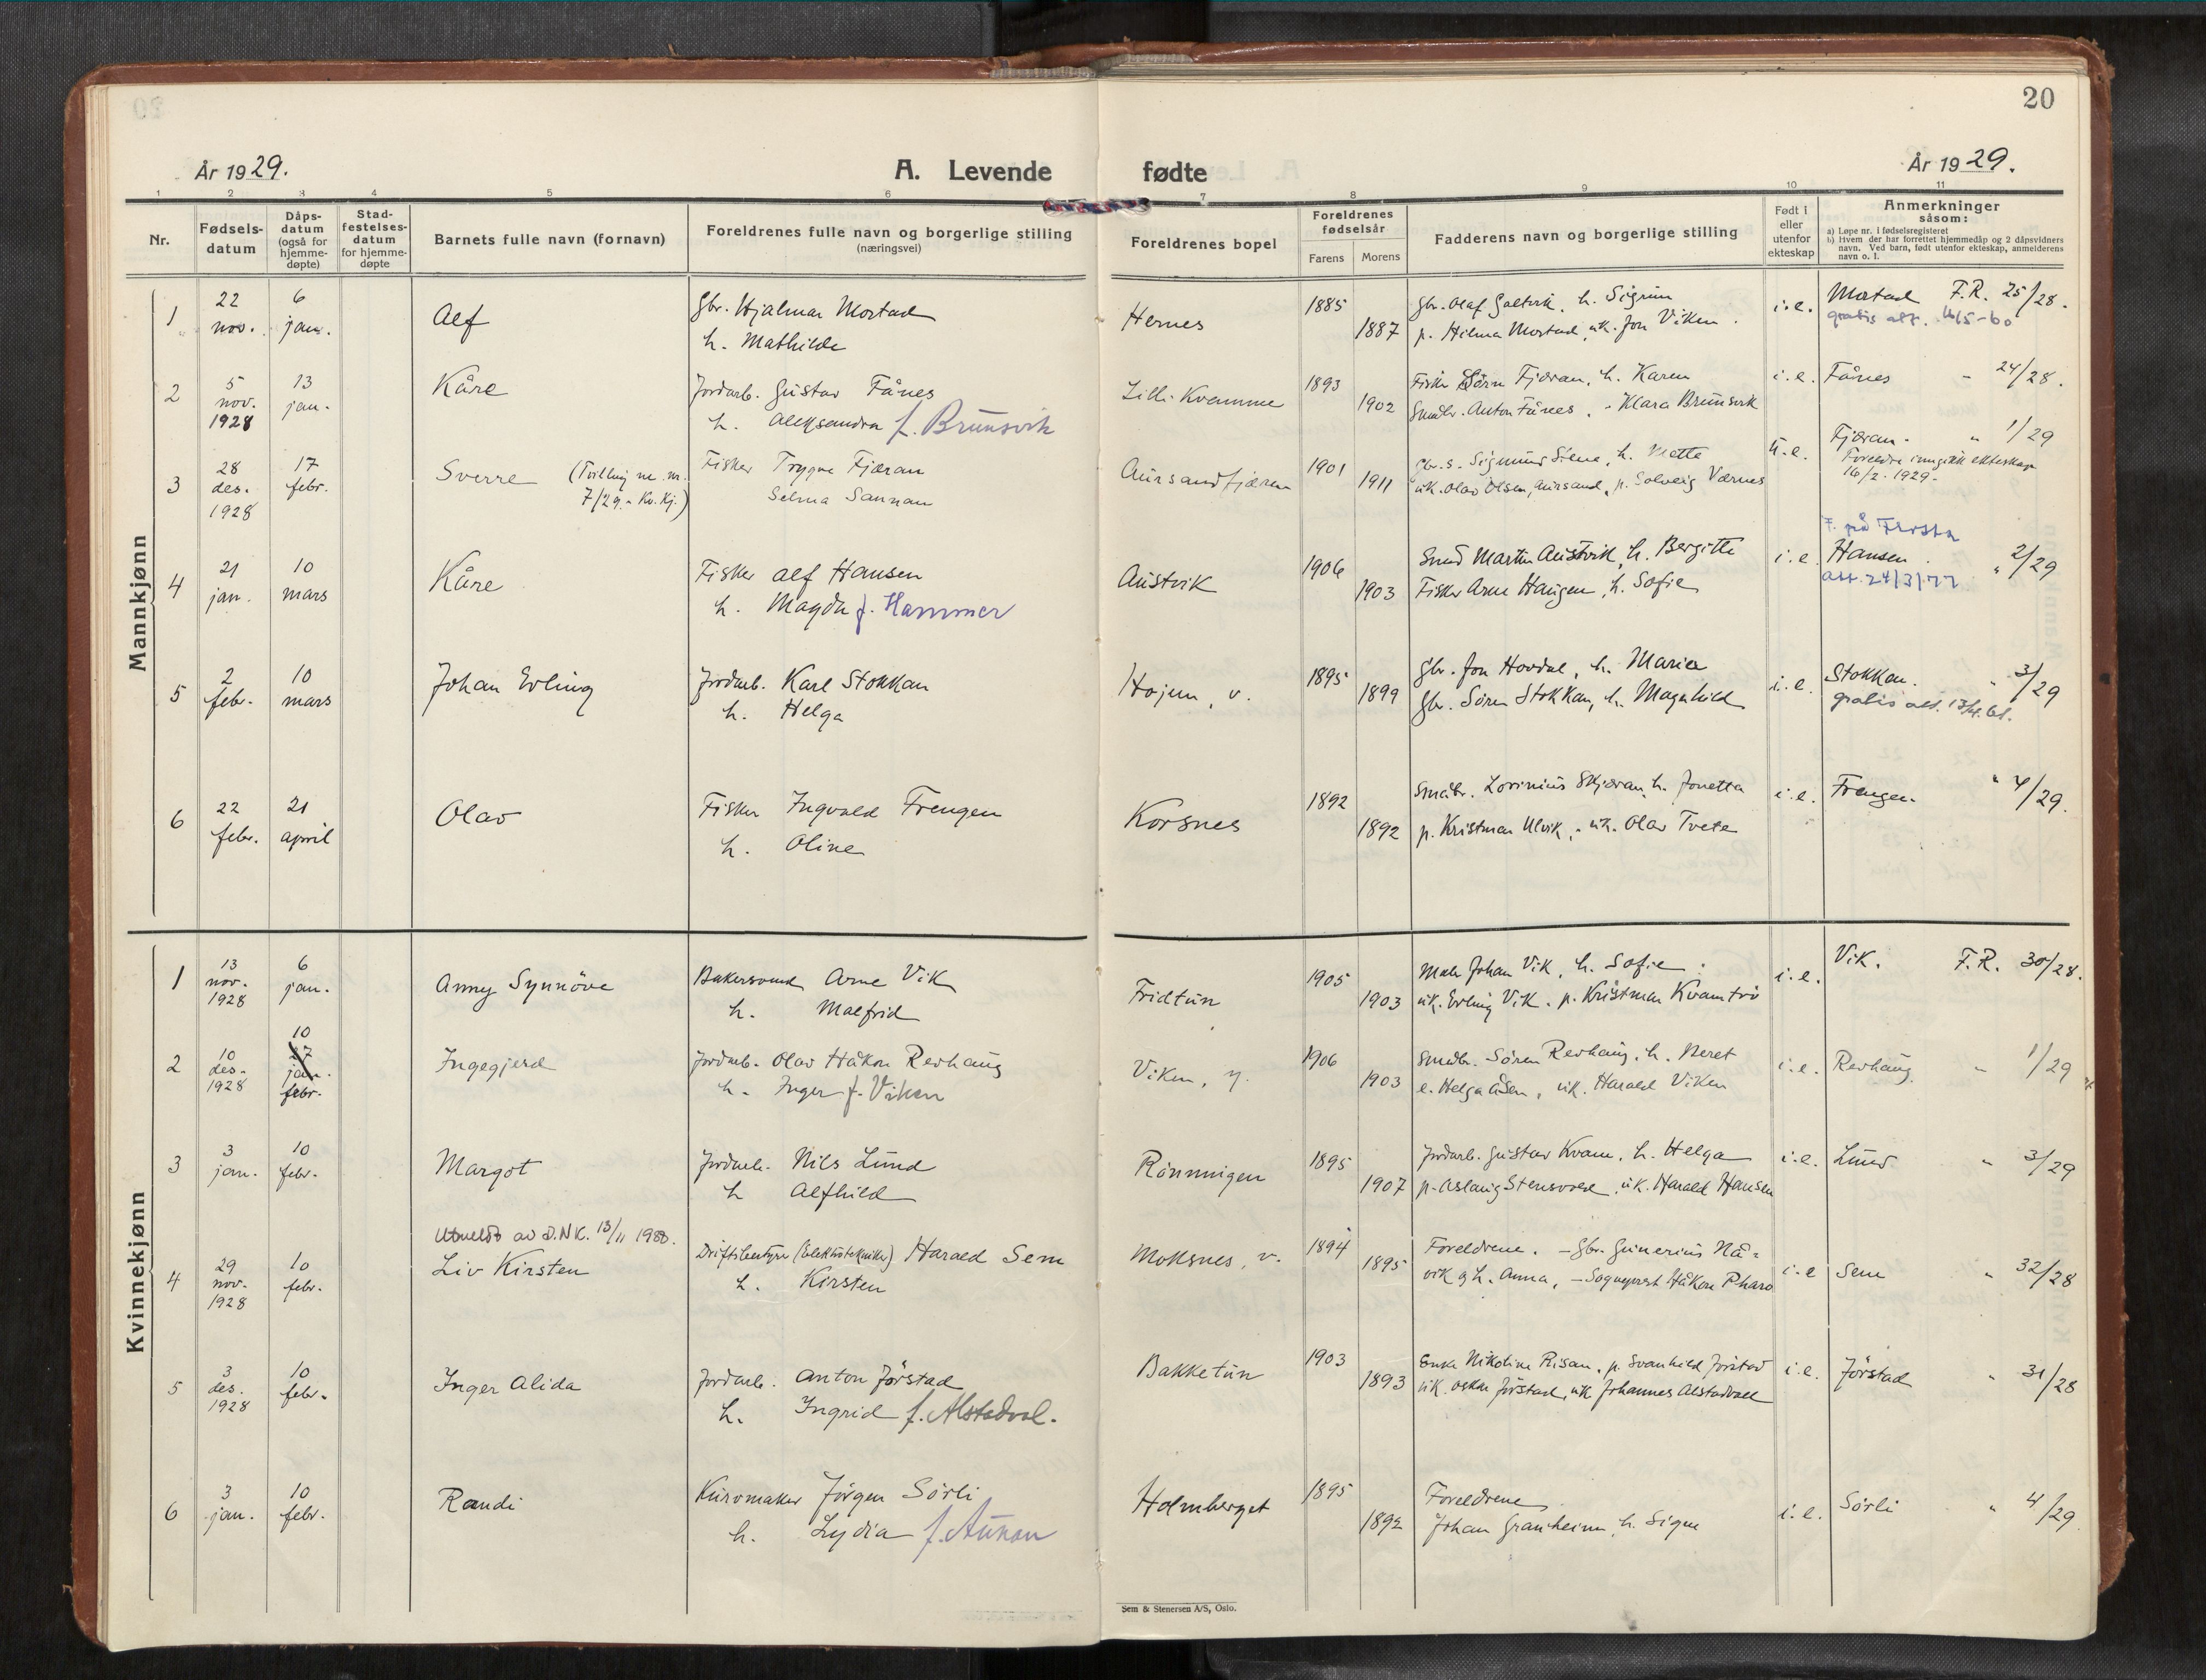 20
År 1929.
A. Levende fødte
År 1929.
1 2 3 4 5 6 7 8 9 10 11
Nr.
Fødsels-
datum
Dåps-
datum
(også for
hjemme-
døpte)
Stad-
festelses-
datum
for hjemme-
døpte
Barnets fulle navn (fornavn)
Foreldrenes fulle navn og borgerlige stilling
(næringsvei)
Foreldrenes bopel
Foreldrenes
fødselsår
Farens Morens
Fadderens navn og borgerlige stilling
Født i
eller
utenfor
ekteskap
Anmerkninger
såsom:
a) Løpe nr. i fødselsregisteret
b) Hvem der har forrettet hjemmedåp og 2 dåpsvidners
navn. Ved barn, født utenfor ekteskap, anmelderens
navn o. l.
Mannkjønn
1 22 nov. 6 jan. Alf Gbr. Hjalmar Mostad
h. Mathilde
Hernes 1885 1887
Gbr. Olaf Galtvik, h. Sigrun
p. Hilma Mostad, uk. Jon Viken.
i.e. Mostad F.R. 25/28.
gratis att.
2 5 nov. 1928 13 jan. Kåre Jordarb. Gustav Fånes
h. Aleksandra f. Brunsvik
Lille-Kvamme 1893 1902
Fisker Sörn Fjæran, h. Karen
Småbr. Anton Fånes, - Klara Brunsvik
i.e. Fånes - 24/28.
3 28 des. 1928 17 febr. Sverre (Tvilling m. nr.
7/29 - Kv.kj.)
Fisker Trygve Fjæran
Selma Sannan
Aursandfjæren 1901 1911
Gbr.s. Sigmund Siene, h. Mette
uk. Olav Olsen, Aursand, p. Solveig Værnes
u.e. Fjæran. " 1/29
Foreldre inngikk ekteskap
16/2. 1929.
4 21 jan. 10 mars Kåre Fisker Alf Hansen
h. Magda f. Hammer
Austvik 1906 1903
Smed Martin Austvik, h. Bergitte
Fisker Arne Haugen, h. Sofie
i.e. F. på Frosta
Hansen. " 2/29
att. 24/3/77
5 2 febr. 10 mars Johan Erling Jordarb. Karl Stokkan
h. Helga
Hojem, v. 1895 1899
Gbr. Jon Hovdal, h. Maria
Gbr. Sören Stokkan, h. Magnhild
i.e. Stokkan. " 3/29
gratis att. 13/4.61.
6 22 febr. 21 april Olav Fisker Ingvald Frengen
h. Oline
Korsnes 1892 1892
Småbr. Lorinius Skjæran, h. Jonetta
p. Kristman Ulvik, uk. Olav Tvete
i.e. Frengen. " 4/29.
Kvinnekjønn
1 13 nov. 1928 6 jan. Anny Synnöve Bakersvend Arne Vik
h. Malfrid
Fridtun 1905 1903
Maler Johan Vik, h. Sofie.
uk. Erling Vik. p. Kristman Kvamtrö
i.e. Vik. F.R. 30/28.
2 10 des. 1928 10 febr. Ingegjerd Jordarb. Olav Håkon Revhaug
h. Inger f. Viken
Viken, y. 1906 1903
Småbr. Sören Revhaug, h. Beret
e. Helga Åsen, uk. Harald Viken
i.e. Revhaug. " 1/29
3 3 jan. 10 febr. Margot Jordarb. Nils Lund
h. Alfhild
Rönningen 1895 1907
Jordarb. Gustav Kvam, h. Helga
p. Aslaug Stensvoll, uk. Harald Hansen
i.e. Lund " 3/29
4 29 nov. 1928 10 febr. Utmeldt av d.N.K. 13/11 1950.
Liv Kirsten Driftsbestyrer (Elektrotekniker) Harald Sem
h. Kirsten
Moksnes, v. 1894 1895
Foreldrene. - Gbr. Gunerius Nå-
vik og h. Anna, - Sogneprest Håkon Pharo
i.e Sem " 32/28
5 3 des. 1928 10 febr. Inger Alida Jordarb. Anton Jörstad
h. Ingrid f. Alstadvol.
Bakketun 1903 1893
Enke Nikoline Risan, p. Svanhild Jörstad
uk. Oskar Jörstad, uk. Johannes Alstadvoll
i.e. Jörstad " 31/28
6 3 jan. 10 febr. Randi Kurvmaker Jörgen Sörli
h. Lydia f. Aunan
Holmberget 1895 1892
Foreldrene
Johan Granheim, h. Signe
i.e. Sörli " 4/29
Sem & Stenersen A/S, Oslo.